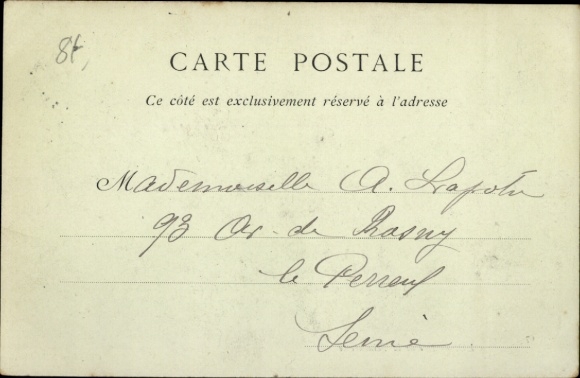 84
CARTE POSTALE
Ce côté est exclusivement réservé à l'adresse
Mademoiselle A.
93 Av. de Rosny
le Perreux
Seine